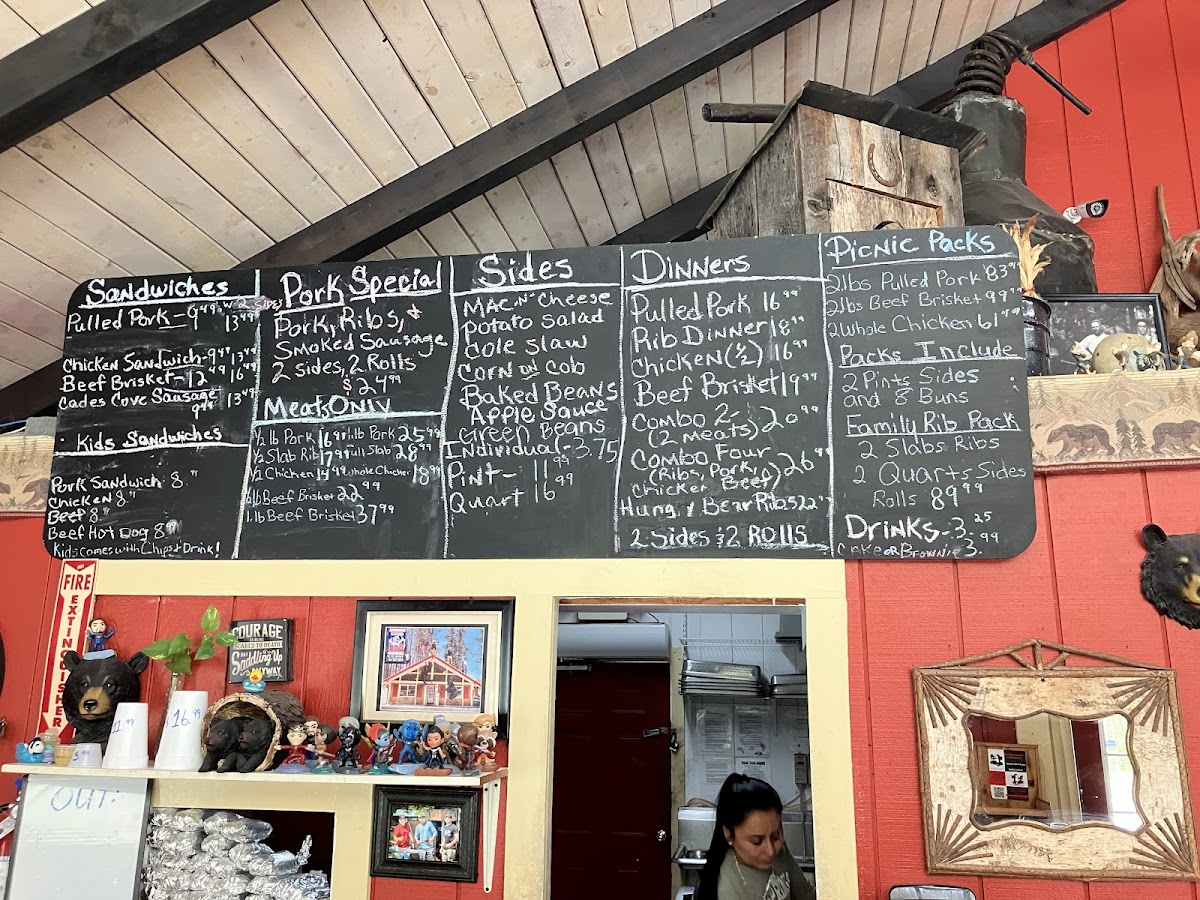 Sandwiches
Pulled Pork - 9.49 w 2 sides 13.49
Chicken Sandwich - 9.49 13.49
Beef Brisket - 12.49 16.49
Cades Cove Sausage 13.49
9.49
Kids Sandwiches
Pork Sandwich 8
Chicken 8
Beef 8
Beef Hot Dog 8
Kids comes with Chips + Drink!
Pork Special
Pork, Ribs, &
Smoked Sausage
2 sides, 2 Rolls
$24.99
Meats Only
1/2 lb Pork 16.99 1 lb Pork 25.99
1/2 Slab Rib 17.99 Full Slab 28.99
1/2 Chicken 14.99 Whole Chicken 18.99
Beef Brisket 22.99
1 lb Beef Brisket 37.99
Sides
Mac n' Cheese
Potato Salad
Cole Slaw
Corn on Cob
Baked Beans
Apple Sauce
Green Beans
Individual - 3.75
Pint - 11.99
Quart 16.99
Dinners
Pulled Pork 16.99
Rib Dinner 18.99
Chicken (1/2) 16.99
Beef Brisket 19.99
Combo 2 - 20.99
(2 Meats)
Combo Four 26.99
(Ribs, Pork,
Chicken Beef)
Hungry Bear Ribs 22.99
2 Sides & 2 Rolls
Picnic Packs
2lbs Pulled Pork 83.99
2lbs Beef Brisket 99.99
2 Whole Chicken 61.99
Packs Include
2 Pints Sides
and 8 Buns
Family Rib Pack
2 Slabs Ribs
2 Quarts Sides
Rolls 89.99
Drinks - 3.25
Cake or Brownie 3.99
FIRE
EXTINGUISHER
COURAGE
IS BEING
SCARED TO DEATH
BUT
Saddling Up
ANYWAY
11.99
16.99
OUT: